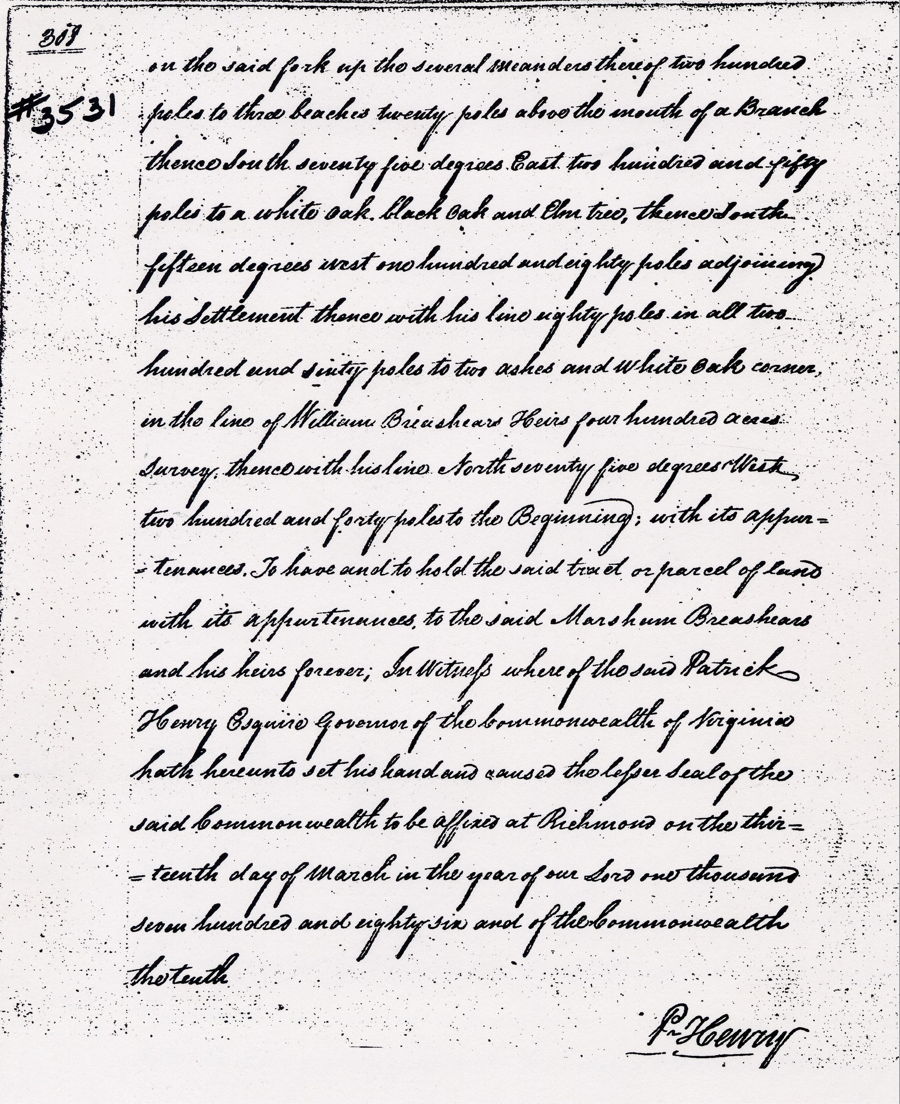 on the said fork up the several meanders thereof two hundred
#3531
poles to three beaches twenty poles above the mouth of a Branch
thence South seventy five degrees East two hundred and fifty
poles to a white Oak, black Oak and Elm tree, thence South
fifteen degrees west one hundred and eighty poles adjoining
his Settlement thence with his line eighty poles in all two
hundred and sixty poles to two ashes and White Oak corner,
in the line of William Breashears Heirs four hundred acres
Survey, thence with his line North seventy five degrees West
two hundred and forty poles to the Beginning; with its appur=
=tenances. To have and to hold the said tract or parcel of land
with its appurtenances, to the said Marsham Breashears
and his heirs forever; In Witness whereof the said Patrick
Henry Esquire Governor of the Commonwealth of Virginia
hath hereunto set his hand and caused the lesser Seal of the
said Commonwealth to be affixed at Richmond on the thir=
=teenth day of March in the year of our Lord one thousand
seven hundred and eighty six and of the Commonwealth
the tenth
P. Henry